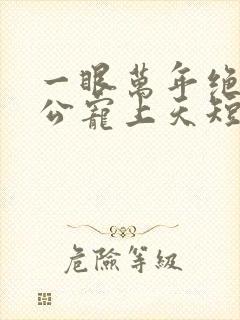 一眼萬年绝
公寵上天短
危險等級